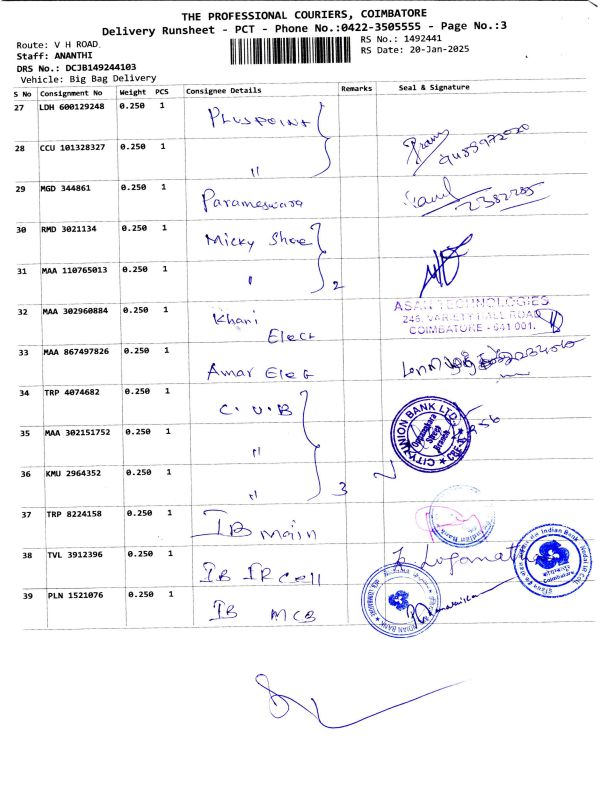 THE PROFESSIONAL COURIERS, COIMBATORE
Delivery Runsheet - PCT - Phone No.:0422-3505555 - Page No.:3
Route: V H ROAD
RS No.: 1492441
Staff: ANANTHI
RS Date: 20-Jan-2025
DRS No.: DCJB149244103
Vehicle: Big Bag Delivery
S No Consignment No Weight PCS Consignee Details Remarks Seal & Signature
27 LDH 600129248 0.250 1 PLUSPOINT
28 CCU 101328327 0.250 1 "
29 MGD 344861 0.250 1 Parameswara
30 RMD 3021134 0.250 1 Micky Shoe
31 MAA 110765013 0.250 1 " 2
32 MAA 302960884 0.250 1 Khani Elect
ASAN TECHNOLOGIES
246, VARIETY HALL ROAD,
COIMBATORE - 641 001.
33 MAA 867497826 0.250 1 Amar Elect
34 TRP 4074682 0.250 1 C.U.B
CITY UNION BANK LTD.
35 MAA 302151752 0.250 1 "
36 KMU 2964352 0.250 1 " 3
37 TRP 8224158 0.250 1 IB main
38 TVL 3912396 0.250 1 IB IR cell
39 PLN 1521076 0.250 1 IB MCB
Indian Bank
INDIAN BANK